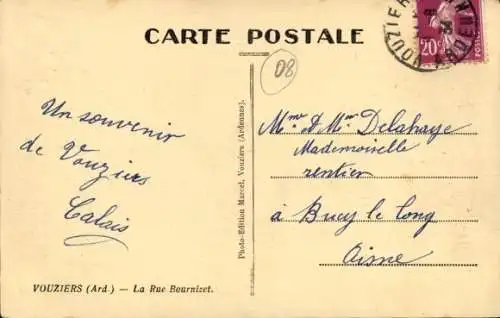 CARTE POSTALE
VOUZIERS
ARDENNES
20c
POSTES
08
Un souvenir
de Vouziers
Calais
Mme & Mr Delahaye
Mademoiselle
rentier
à Bucy le long
Aisne
Photo-Edition Marcel, Vouziers (Ardennes).
VOUZIERS (Ard.) — La Rue Bournizet.